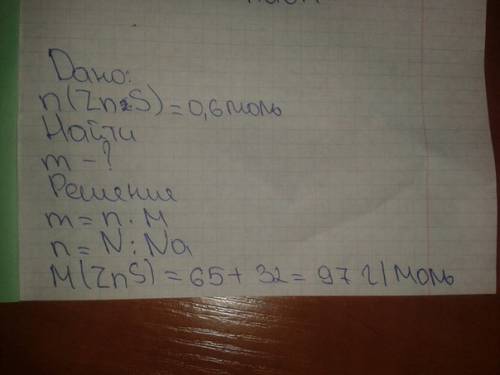 Дано:
n(ZnS) = 0,6 моль
Найти
m - ?
Решения
m = n · M
n = N : Na
M(ZnS) = 65 + 32 = 97 г/моль